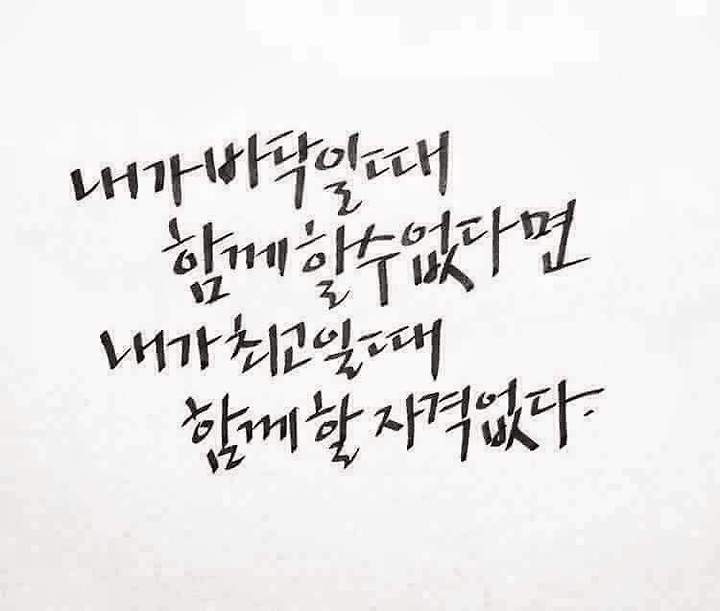 내가 바닥일때
함께 할 수 없다면
내가 최고일때
함께 할 자격없다.